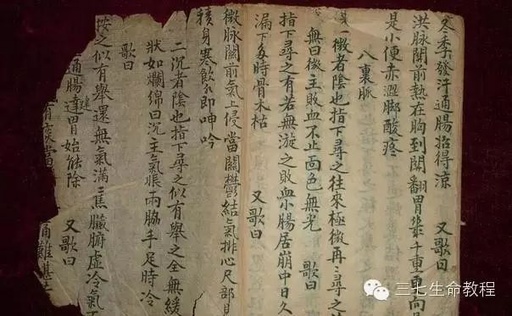 冬季發汗通腸招得涼 又歌曰
洪脉關前熱在胸到關翻胃幾千重
是小便赤澀脚酸疼
八裏脉
一微者陰也指下尋之往來極微再三尋之
無曰微主敗血不止面色無光 歌曰
指下尋之有若無漩之敗血小腸居崩中日久
漏下多時骨木枯 又歌曰
微脉關前氣上侵當關鬱結氣排心尺部見
積身寒飲即呻吟
二沉者陰也指下尋之似有舉之全無緩
状如爛綿曰沉主氣脹兩脇手足時冷
歌曰
按之似有舉還無氣滿三焦臟腑虛冷氣不
通腸建胃始能除 又歌曰
三七生命教程